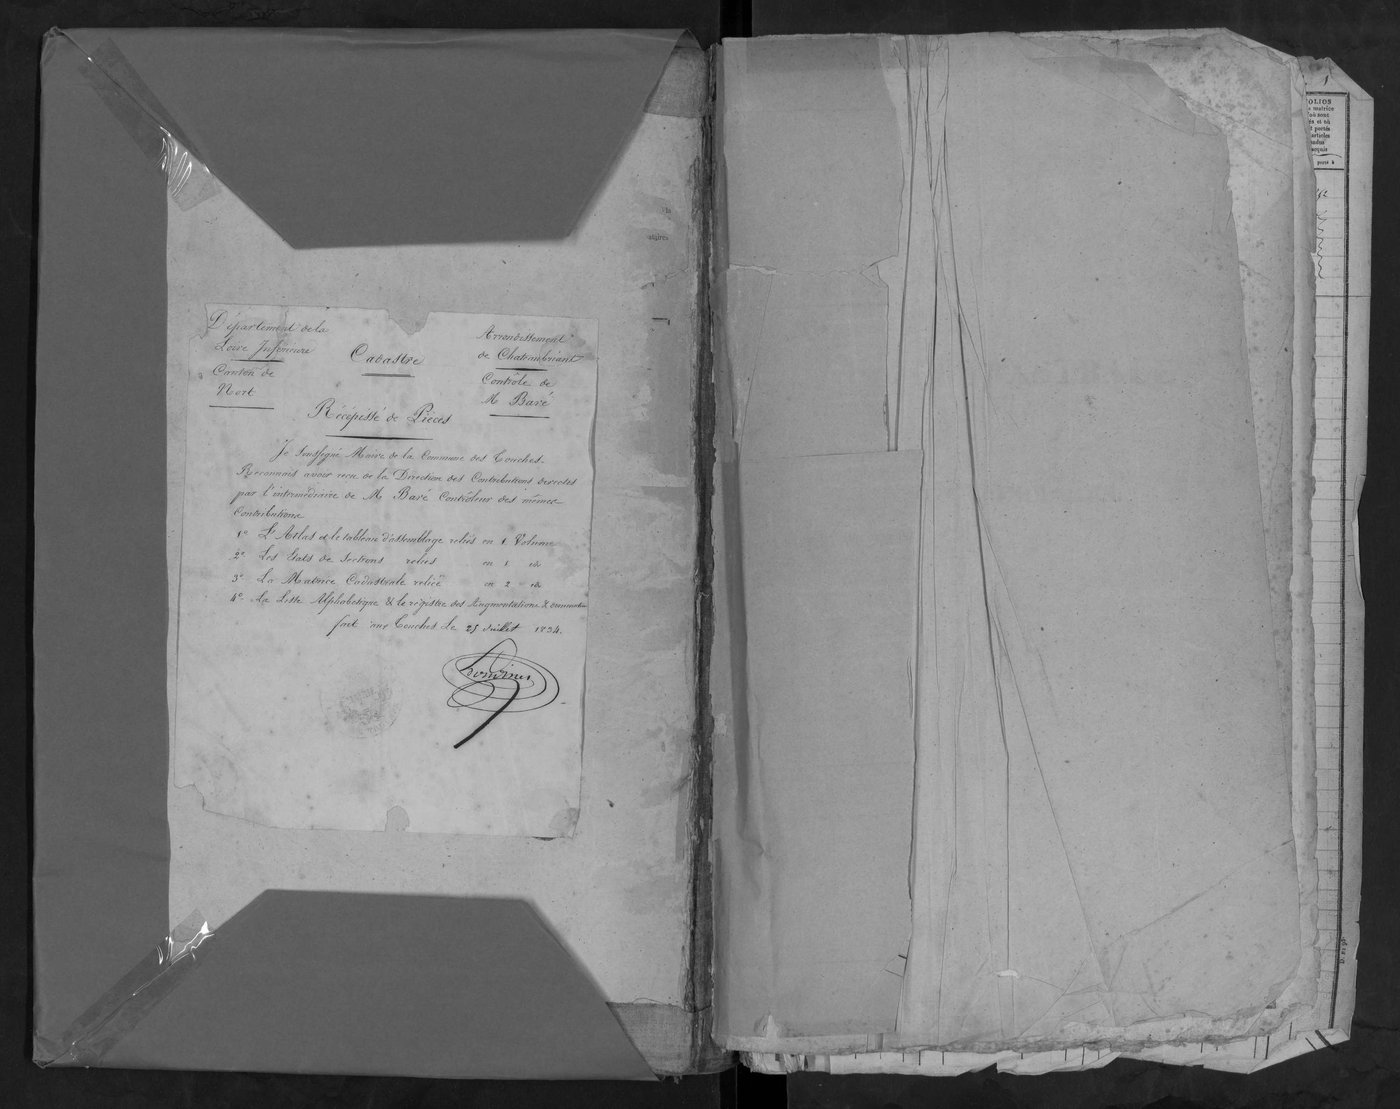 Département de la
Loire Inférieure
Canton de
Nort
Cadastre
Arrondissement
de Chateaubriant
Contrôle de
M Baré
Récépissé de Pièces
Je soussigné Maire de la Commune des Touches
Reconnais avoir recu de la Direction des Contributions directes
par l'intermédiaire de M Baré Contrôleur des mêmes
Contributions
1° L'Atlas et le tableau d'assemblage reliés en 1 Volume
2° Les Etats de Sections reliés en 1 id
3° La Matrice Cadastrale relieé en 2 id
4° La Liste Alphabétique & le régistre des Augmentations &
fait aux Touches Le 25 Juillet 1834.
FOLIOS
matrice
où sont
et où
portés
articles
porté à